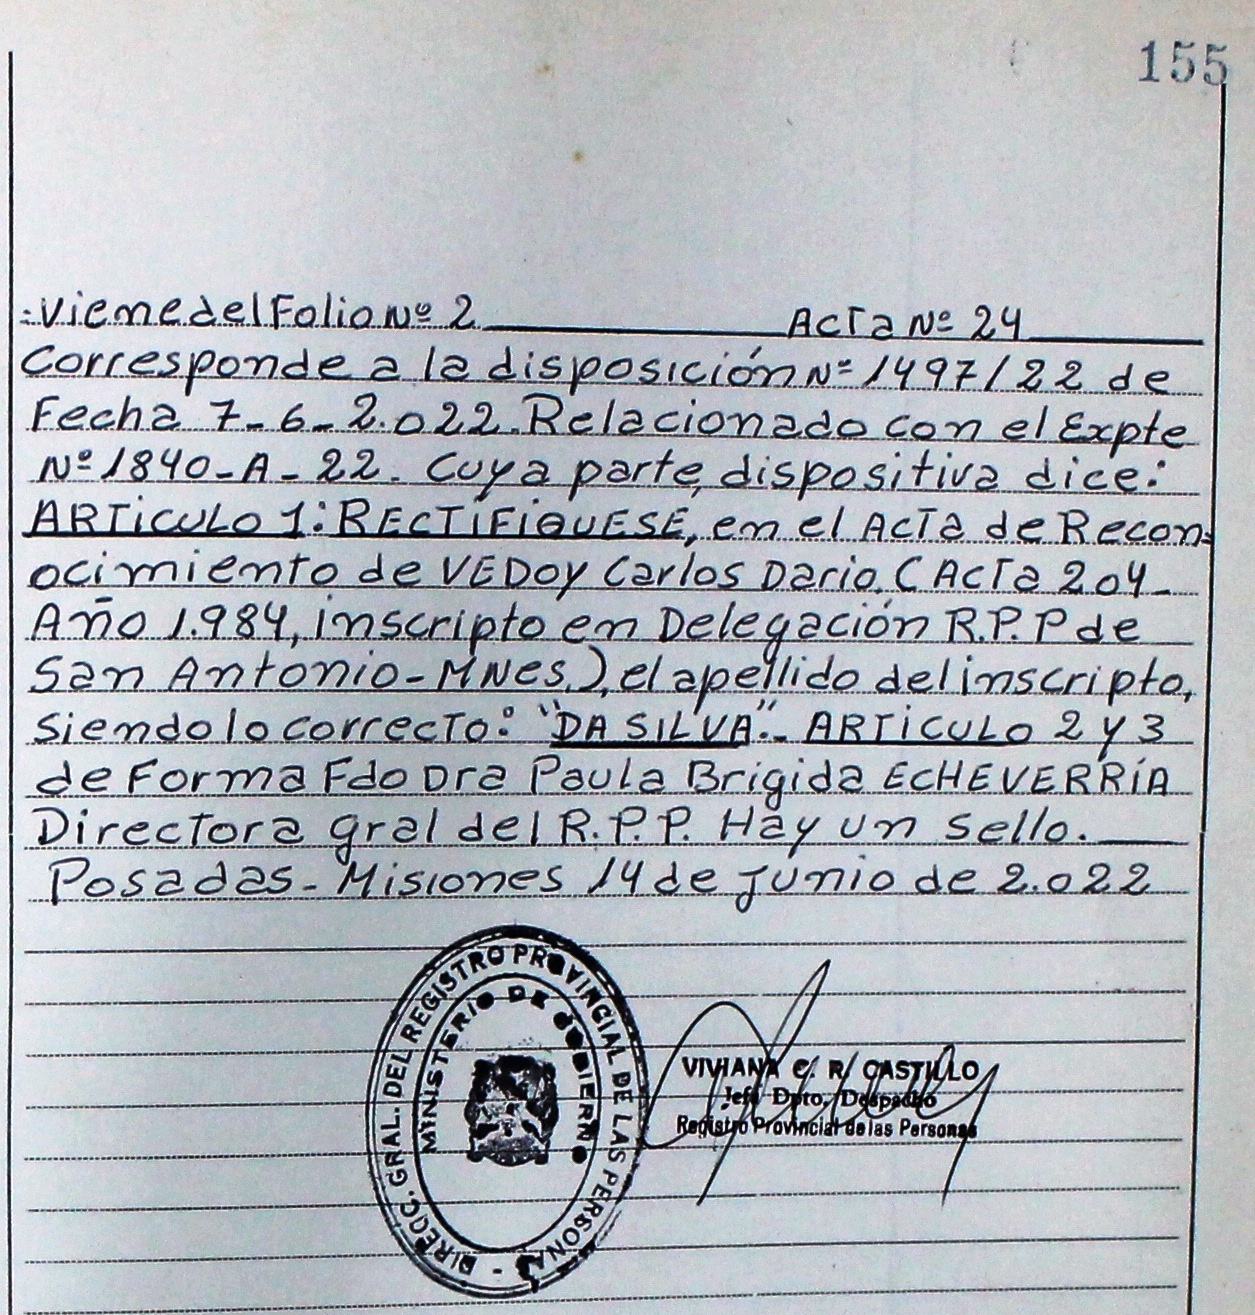 155
:Viene del Folio Nº 2 Acta Nº 24
Corresponde a la disposición Nº 1497/22 de
Fecha 7-6-2.022. Relacionado con el Expte
Nº 1840-A-22. Cuya parte, dispositiva dice:
ARTICULO 1: RECTIFIQUESE, en el Acta de Recon=
ocimiento de VEDOY Carlos Dario. (Acta 204-
Año 1.984, inscripto en Delegación R.P.P de
San Antonio-MNES.), el apellido del inscripto,
siendo lo correcto: "DA SILVA".- ARTICULO 2 y 3
de Forma Fdo Dra Paula Brigida ECHEVERRÍA
Directora gral del R.P.P. Hay un sello.
Posadas-Misiones 14 de Junio de 2.022
DIREC. GRAL. DEL REGISTRO PROVINCIAL DE LAS PERSONAS -
MINISTERIO DE GOBIERNO
VIVIANA C. R. CASTILLO
Jefe Dpto. Despacho
Registro Provincial de las Personas